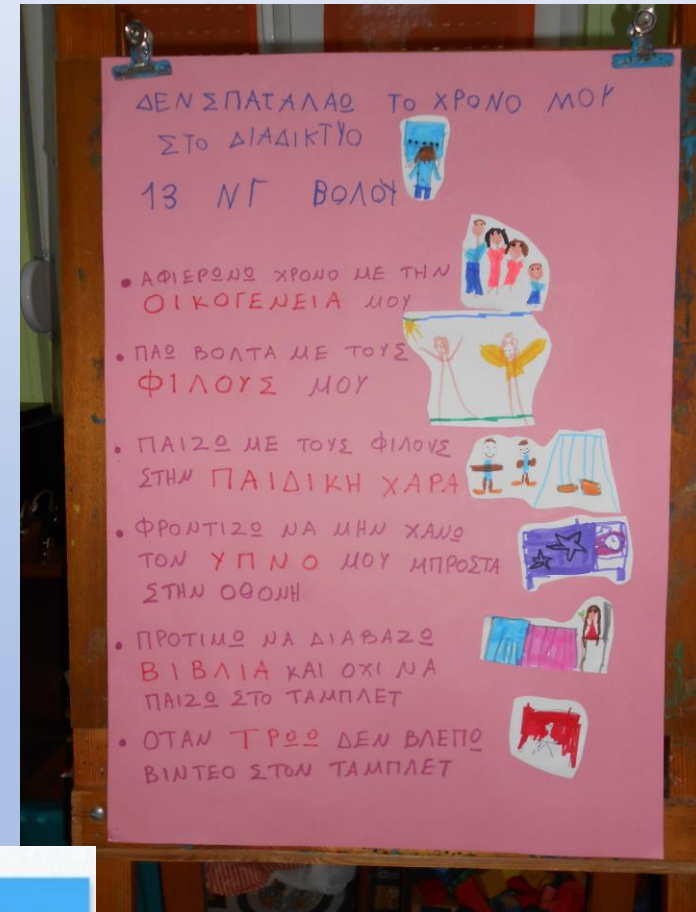 ΔΕΝ ΣΠΑΤΑΛΑΩ ΤΟ ΧΡΟΝΟ ΜΟΥ
ΣΤΟ ΔΙΑΔΙΚΤΥΟ
13 ΝΓ ΒΟΛΟΥ
• ΑΦΙΕΡΩΝΩ ΧΡΟΝΟ ΜΕ ΤΗΝ
ΟΙΚΟΓΕΝΕΙΑ ΜΟΥ
• ΠΑΩ ΒΟΛΤΑ ΜΕ ΤΟΥΣ
ΦΙΛΟΥΣ ΜΟΥ
• ΠΑΙΖΩ ΜΕ ΤΟΥΣ ΦΙΛΟΥΣ
ΣΤΗΝ ΠΑΙΔΙΚΗ ΧΑΡΑ
• ΦΡΟΝΤΙΖΩ ΝΑ ΜΗΝ ΧΑΝΩ
ΤΟΝ ΥΠΝΟ ΜΟΥ ΜΠΡΟΣΤΑ
ΣΤΗΝ ΟΘΟΝΗ
• ΠΡΟΤΙΜΩ ΝΑ ΔΙΑΒΑΖΩ
ΒΙΒΛΙΑ ΚΑΙ ΟΧΙ ΝΑ
ΠΑΙΖΩ ΣΤΟ ΤΑΜΠΛΕΤ
• ΟΤΑΝ ΤΡΩΩ ΔΕΝ ΒΛΕΠΩ
ΒΙΝΤΕΟ ΣΤΟΝ ΤΑΜΠΛΕΤ